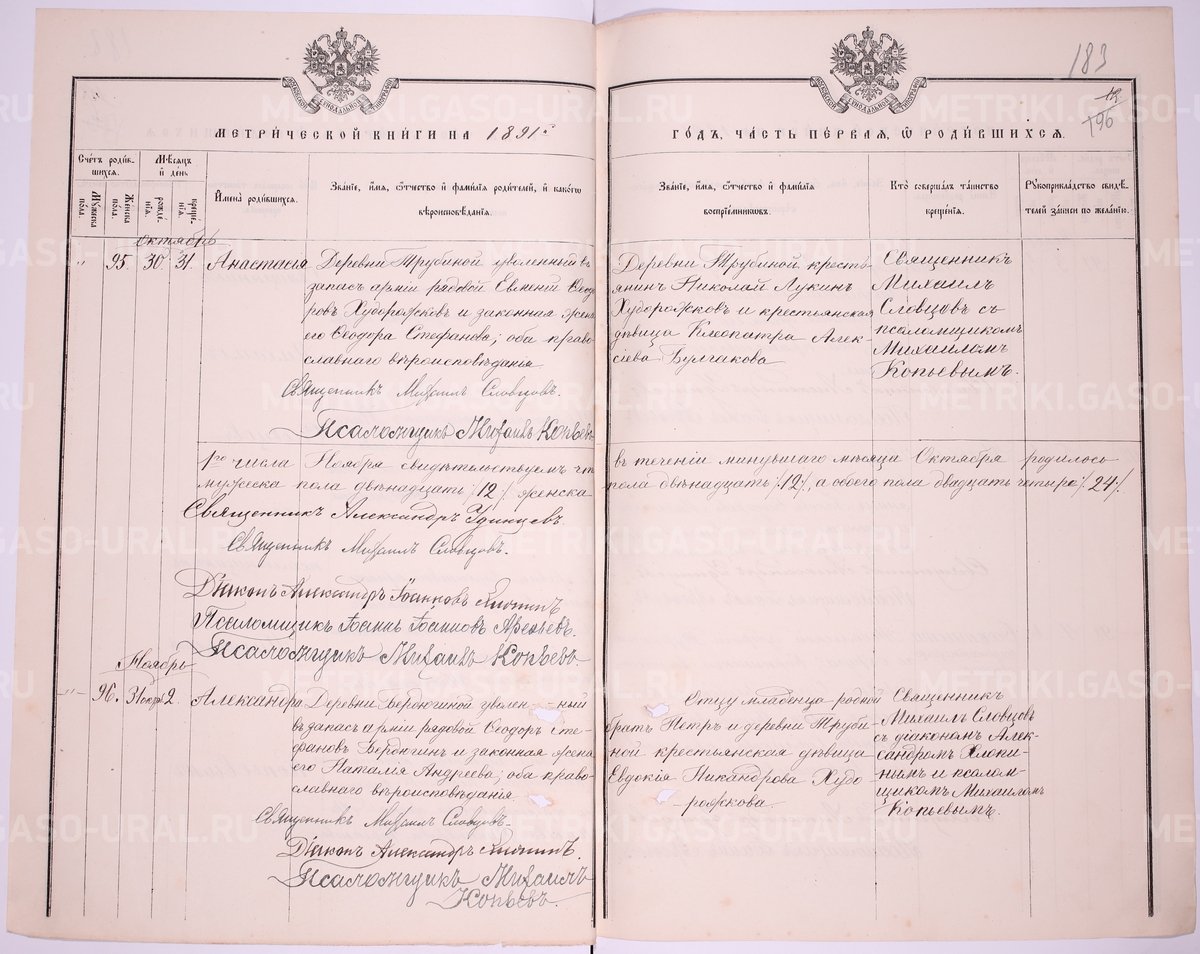 183
13
196
МЕТРИЧЕСКОЙ КНИГИ НА 1891 г.
ГОДЪ, ЧАСТЬ ПЕРВАЯ, Ѡ РОДИВШИХСЯ.
Счетъ родившихся.
Мѣсяцъ и день
Мужеска пола.
Женска пола.
рожденія.
крещенія.
Имена родившихся.
Званіе, имя, отчество и фамилія родителей, и какого вѣроисповѣданія.
Званіе, имя, отчество и фамилія воспріемниковъ.
Кто совершалъ таинство крещенія.
Рукоприкладство свидѣтелей записи по желанію.
Октябрь
" 95. 30. 31. Анастасія
Деревни Трубиной уволенный въ
запасъ арміи рядовой Евменій Ѳеодо
ровъ Худорожковъ и законная жена
его Ѳеодора Стефанова; оба право
славнаго вѣроисповѣданія
Священникъ Михаилъ Словцовъ.
Псаломщикъ Михаилъ Копьевъ
Деревни Трубиной кресть
янинъ Николай Лукинъ
Худорожковъ и крестьянская
дѣвица Клеопатра Алек-
сіева Булгакова
Священникъ
Михаилъ
Словцовъ съ
псаломщикомъ
Михаиломъ
Копьевымъ.
1го числа Ноября свидѣтельствуемъ что въ теченіи минувшаго мѣсяца Октября родилось
мужеска пола двѣнадцать /12/ женска пола двѣнадцать /12/, а обоего пола двадцать четыре /24/.
Священникъ Александръ Удинцевъ.
Священникъ Михаилъ Словцовъ.
Діаконъ Александръ Іоанновъ Хлопинъ
Псаломщикъ Іоаннъ Іоанновъ Арефьевъ.
Псаломщикъ Михаилъ Копьевъ
Ноябрь
" 96. 31 окт. 2. Александра
Деревни Берюгиной уволенный
въ запасъ арміи рядовой Ѳеодоръ Сте-
фановъ Бердюгинъ и законная жена
его Наталія Андреева; оба право-
славнаго вѣроисповѣданія
Священникъ Михаилъ Словцовъ.
Діаконъ Александръ Хлопинъ.
Псаломщикъ Михаилъ
Копьевъ.
Отцу младенца родной
братъ Петръ и деревни Труби
ной крестьянская дѣвица
Евдокія Никандрова Худо
рожкова.
Священникъ
Михаилъ Словцовъ
съ діакономъ Алек-
сандромъ Хлопи-
нымъ и псалом-
щикомъ Михаиломъ
Копьевымъ.
METRIKI.GASO-URAL.RU